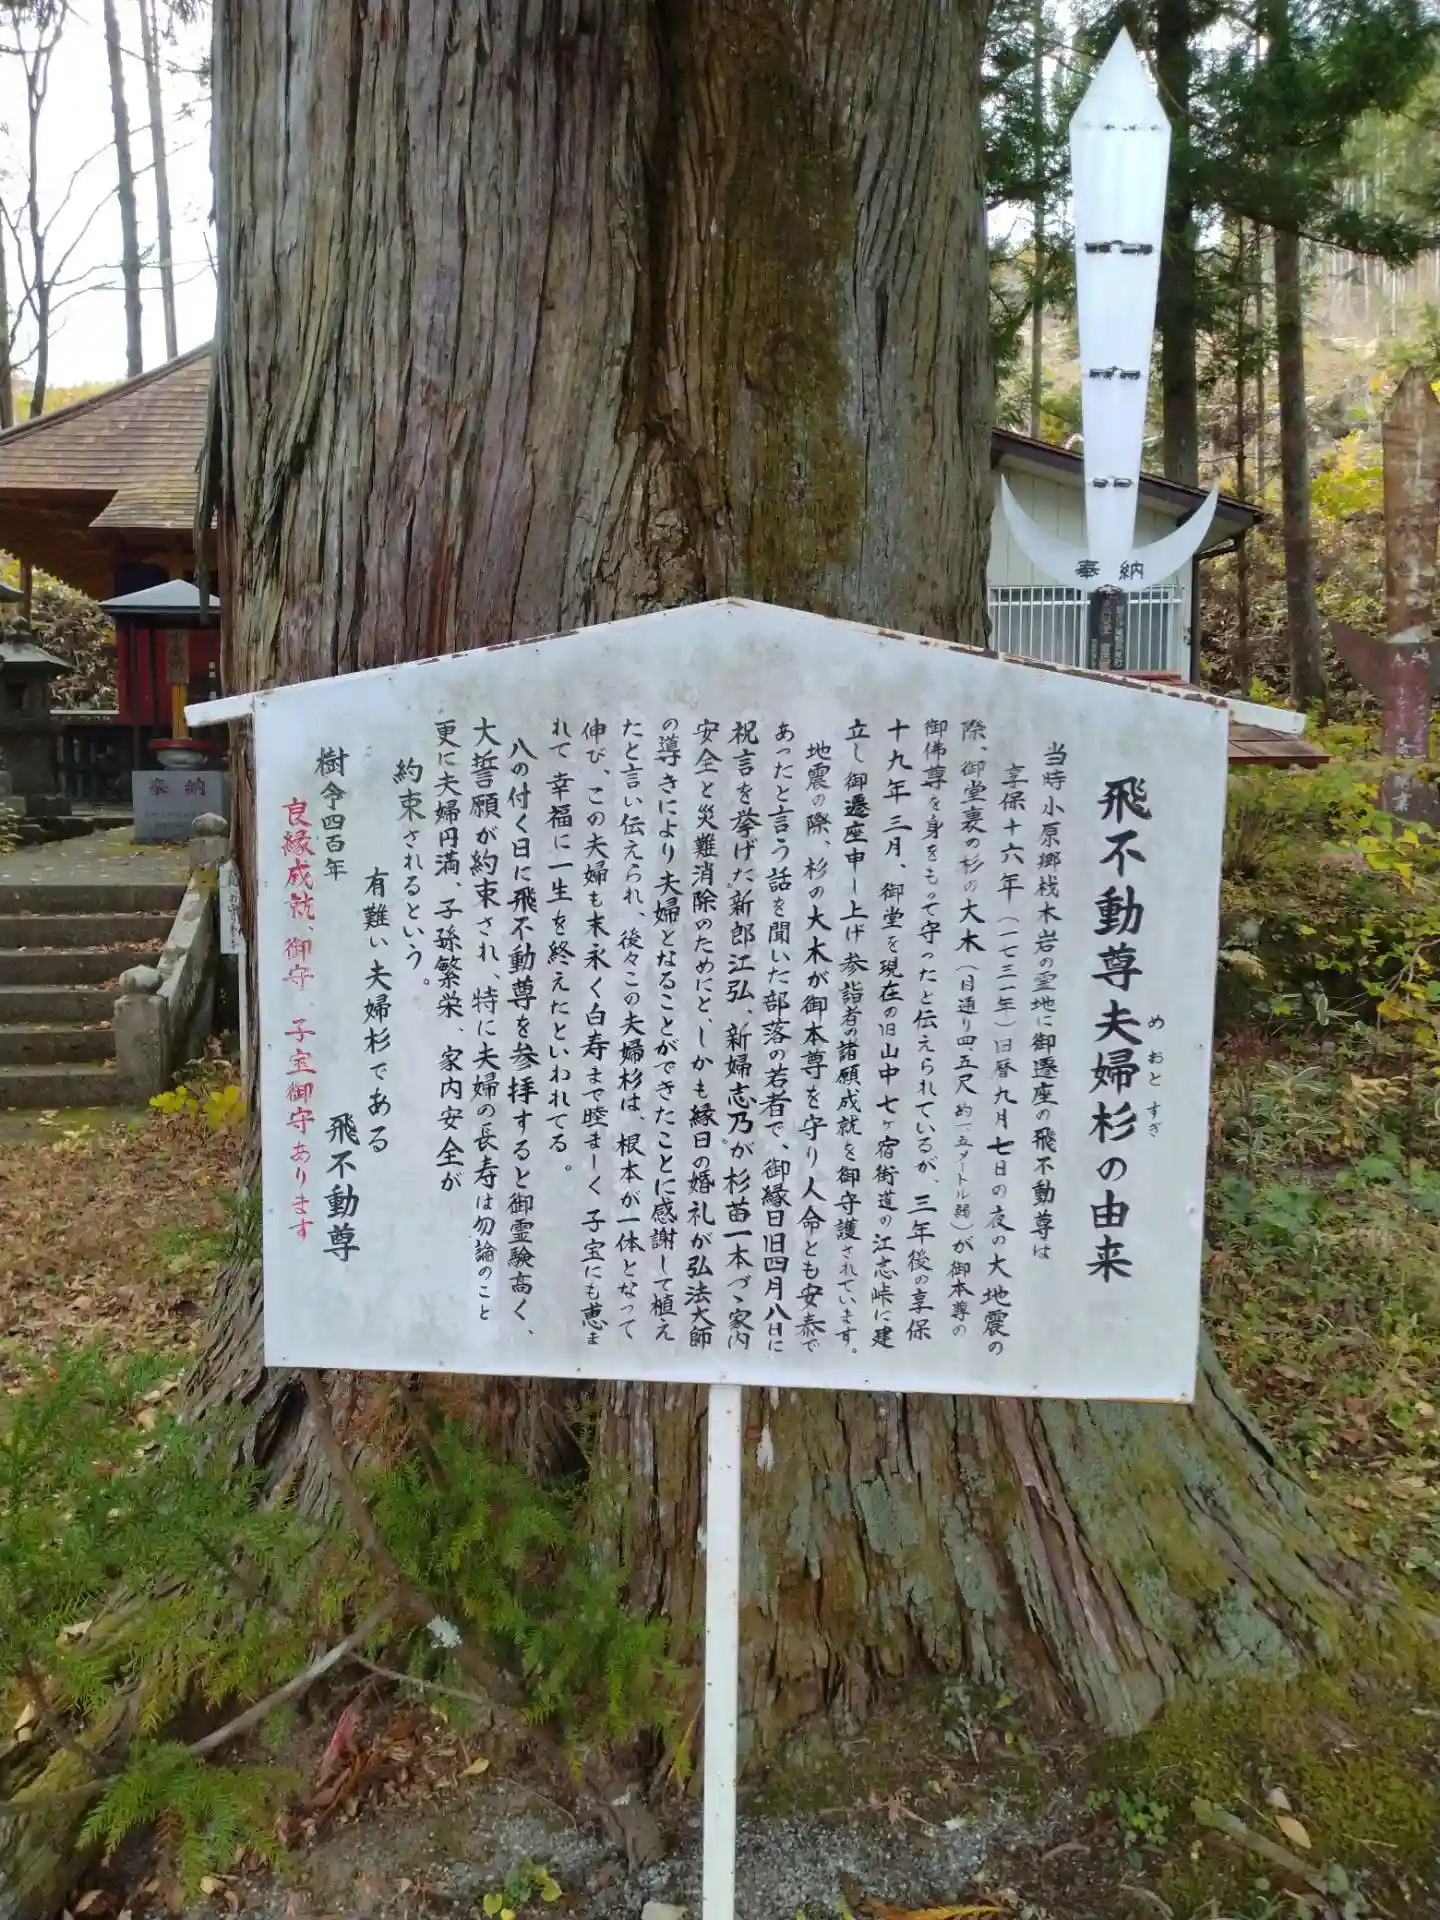 飛不動尊夫婦杉の由来
めおとすぎ
当時小原郷桟木岩の霊地に御遷座の飛不動尊は
享保十六年(一七三一年)旧暦九月七日の夜の大地震の
際、御堂裏の杉の大木(目通り四、五尺約一、五メートル弱)が御本尊の
御佛尊を身をもって守ったと伝えられているが、三年後の享保
十九年三月、御堂を現在の旧山中七ヶ宿街道の江志峠に建
立し御遷座申し上げ参詣者の諸願成就を御守護されています。
地震の際、杉の大木が御本尊を守り人命とも安泰で
あったと言う話を聞いた部落の若者で、御縁日旧四月八日に
祝言を挙げた新郎江弘、新婦志乃が杉苗一本づゝ家内
安全と災難消除のためにと、しかも縁日の婚礼が弘法大師
の導きにより夫婦となることができたことに感謝して植え
たと言い伝えられ、後々この夫婦杉は、根本が一体となって
伸び、この夫婦も末永く白寿まで睦まーく子宝にも恵ま
れて幸福に一生を終えたといわれてる。
八の付く日に飛不動尊を参拝すると御霊験高く、
大誓願が約束され、特に夫婦の長寿は勿論のこと
更に夫婦円満、子孫繁栄、家内安全が
約束されるという。
有難い夫婦杉である
樹令四百年
飛不動尊
良縁成就、御守、子宝御守あります
奉納
奉納